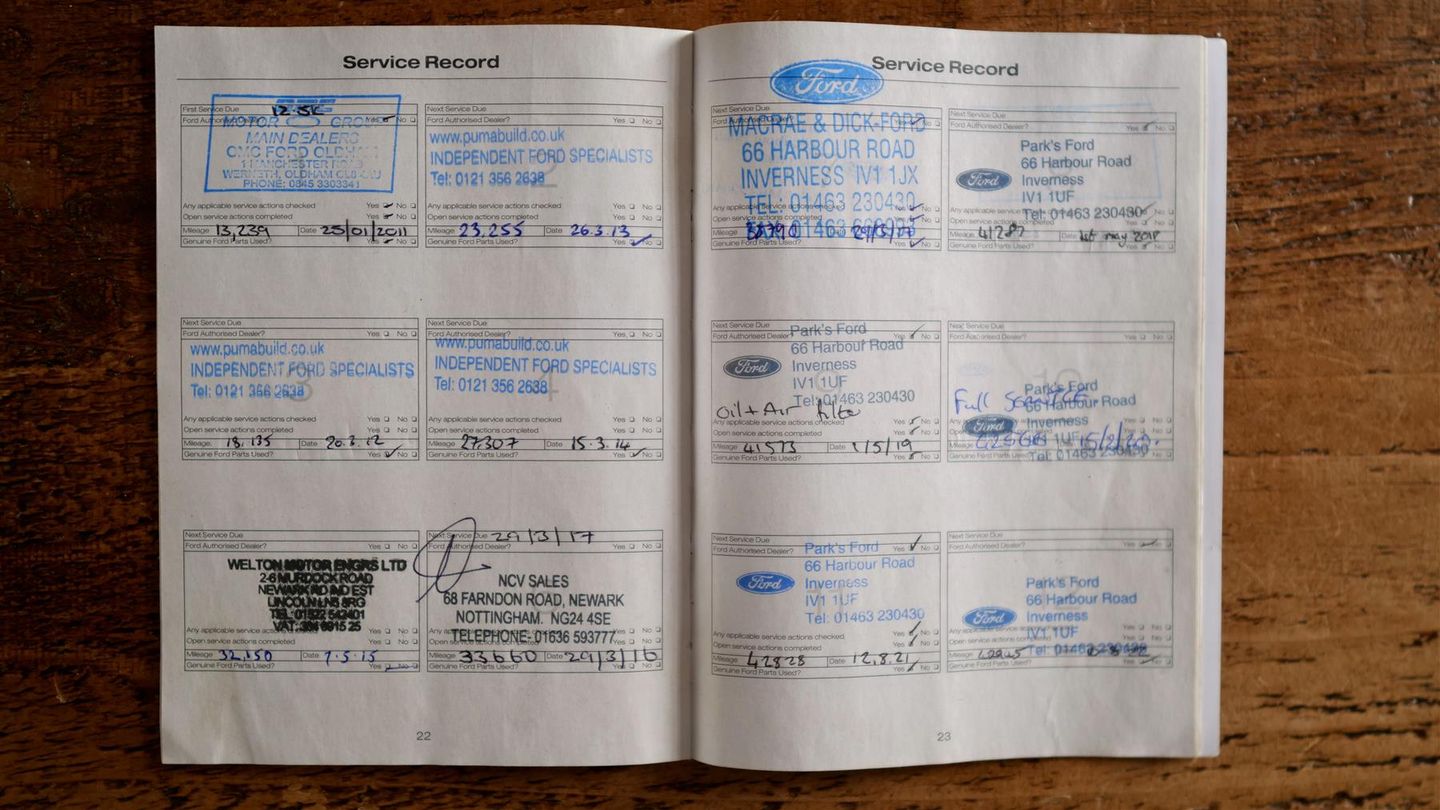 Service Record
First Service Due 12.5K
Ford Authorised Dealer? Yes No
MOTOR GROUP
MAIN DEALERS
CMC FORD OLDHAM
1 MANCHESTER ROAD
WERNETH, OLDHAM
PHONE: 0845 3303341
Any applicable service actions checked Yes No
Open service actions completed Yes No
Mileage 13,239 Date 25/01/2011
Genuine Ford Parts Used? Yes No
Next Service Due
Ford Authorised Dealer? Yes No
www.pumabuild.co.uk
INDEPENDENT FORD SPECIALISTS
Tel: 0121 356 2638
2
Any applicable service actions checked Yes No
Open service actions completed Yes No
Mileage 23,255 Date 26.3.13
Genuine Ford Parts Used? Yes No
Next Service Due
Ford Authorised Dealer? Yes No
www.pumabuild.co.uk
INDEPENDENT FORD SPECIALISTS
Tel: 0121 356 2638
3
Any applicable service actions checked Yes No
Open service actions completed Yes No
Mileage 18,135 Date 20.3.12
Genuine Ford Parts Used? Yes No
Next Service Due
Ford Authorised Dealer? Yes No
www.pumabuild.co.uk
INDEPENDENT FORD SPECIALISTS
Tel: 0121 356 2638
4
Any applicable service actions checked Yes No
Open service actions completed Yes No
Mileage 27,307 Date 15.3.14
Genuine Ford Parts Used? Yes No
Next Service Due
Ford Authorised Dealer? Yes No
WELTON MOTOR ENGRS LTD
2-6 MURDOCK ROAD
NEWARK RD IND EST
LINCOLN LN5 8RG
TEL: 01522 542401
Any applicable service actions Yes No
Open service actions completed Yes No
Mileage 32,150 Date 7.5.15
Genuine Ford Parts Used? Yes No
Next Service Due 29/3/17
Ford Authorised Dealer? Yes No
NCV SALES
68 FARNDON ROAD, NEWARK
NOTTINGHAM. NG24 4SE
TELEPHONE: 01636 593777
Mileage 33660 Date 29/3/16
Genuine Ford Parts Used? Yes No
22
Service Record
Ford
Next Service Due
Ford Authorised Dealer?
MACRAE & DICK-FORD
66 HARBOUR ROAD
INVERNESS IV1 1JX
TEL: 01463 230430
Open service actions completed
Mileage
Genuine Ford Parts Used? Yes No
Next Service Due
Ford Authorised Dealer? Yes No
Park's Ford
66 Harbour Road
Ford Inverness
IV1 1UF
Tel: 01463 230430
Any applicable service actions checked No
Open service actions completed Yes No
Mileage 41287 Date 1st may 2018
Genuine Ford Parts Used? Yes No
Next Service Due
Ford Authorised Dealer?
Park's Ford
66 Harbour Road
Ford Inverness
IV1 1UF
Tel: 01463 230430
9
Oil + Air filter
Any applicable service actions checked Yes No
Open service actions completed Yes No
Mileage 41573 Date 1/5/19
Genuine Ford Parts Used? Yes No
Next Service Due
Ford Authorised Dealer? Yes No
10
Park's Ford
66 Harbour Road
Full Service
Ford Inverness
1UF
Tel: 01463 230430
Mileage
Genuine Ford Parts Used
Next Service Due
Ford Authorised Dealer? Yes No
Park's Ford
66 Harbour Road
Ford Inverness
IV1 1UF
Tel: 01463 230430
Any applicable service actions checked Yes No
Open service actions completed Yes No
Mileage 42828 Date 12.8.21
Genuine Ford Parts Used? Yes No
Next Service Due
Ford Authorised Dealer? Yes No
Park's Ford
66 Harbour Road
Ford Inverness
IV1 1UF
Tel: 01463 230430
Any applicable service actions
Open service actions completed
Mileage
Genuine Ford Parts Used? Yes No
23